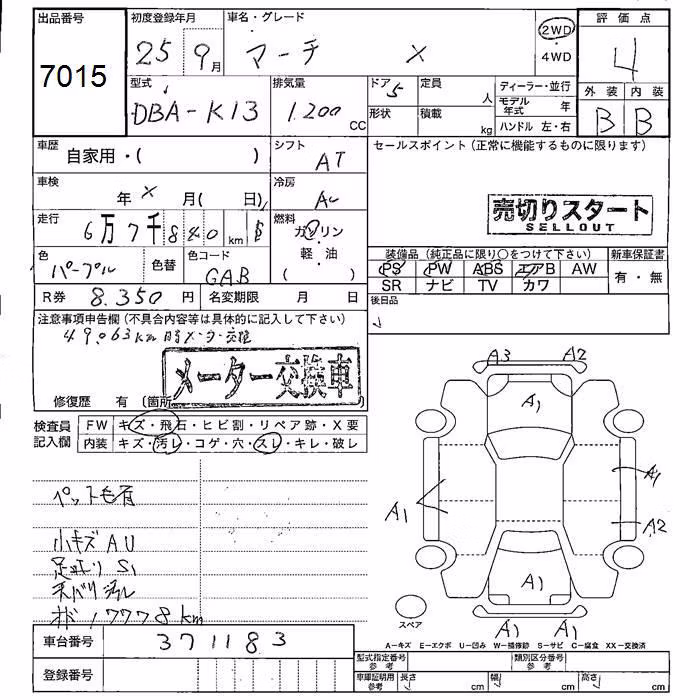 出品番号 初度登録年月 車名・グレード 評価点
7015 25 9月 マーチ X 2WD 4
4WD
型式 排気量 ドア 5 定員 人 ディーラー・並行 外装 内装
DBA-K13 1.200 CC 形状 積載 kg モデル年式 年 B B
ハンドル 左・右
車歴 自家用・( ) シフト AT セールスポイント (正常に機能するものに限ります)
車検 年 X 月( 日) 冷房 AC
売切りスタート
SELLOUT
走行 6万7千840 km 燃料 ガソリン
軽・油
色 パープル 色替 色コード GAB
装備品 (純正品に限り○をつけて下さい) 新車保証書
PS PW ABS エアB AW 有・無
SR ナビ TV カワ
R券 8.350円 名変期限 月 日 後日品
注意事項申告欄 (不具合内容等は具体的に記入して下さい)
49,063km時メーター交換
メーター交換車
修復歴 有 (箇所
検査員記入欄 FW キズ・飛石・ヒビ割・リペア跡・X要
内装 キズ・汚レ・コゲ・穴・スレ・キレ・破レ
A3 A2
A1
A1
A1 A2
A1
A1 A1
ペット毛有
小キズ AU
足廻り S1
天バリ汚レ
17778km
スペア
A-キズ E-エクボ U-凹み W-補修跡 S-サビ C-腐食 XX-交換済
車台番号 371183
型式指定番号 参考 類別区分番号 参考
登録番号
車庫証明用 参考 長さ cm 幅 cm 高さ cm